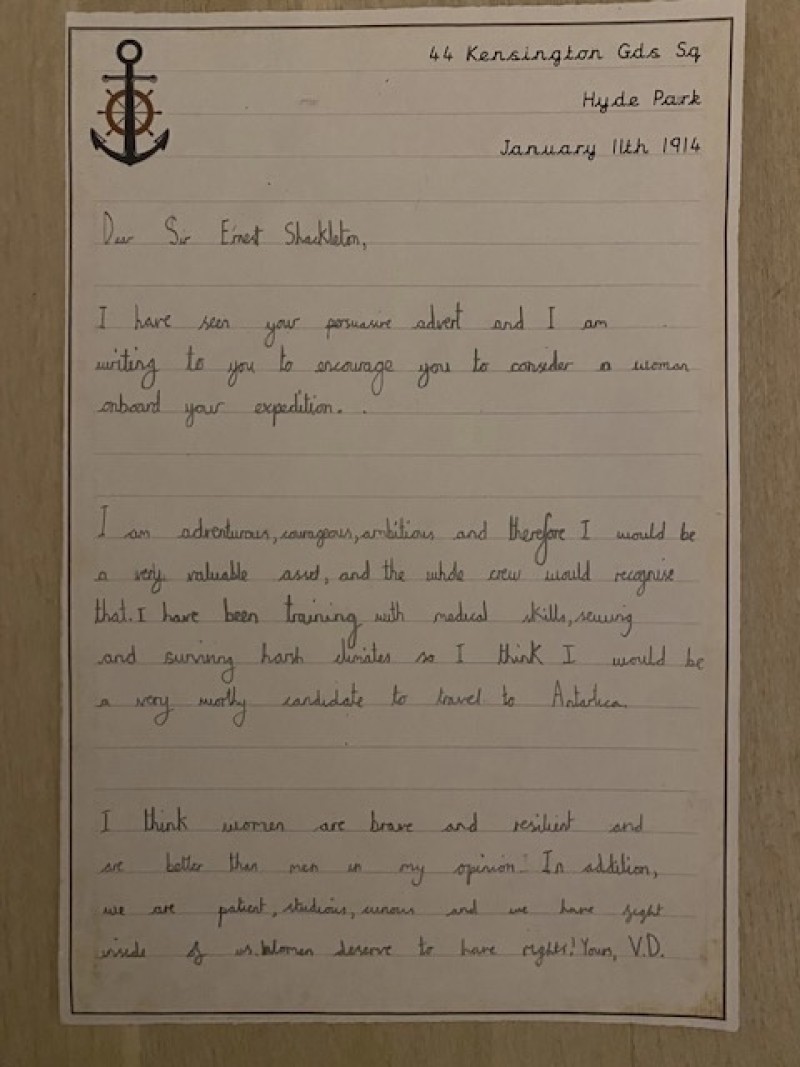 44 Kensington Gds Sq
Hyde Park
January 11th 1914
Dear Sir Ernest Shackleton,
I have seen your persuasive advert and I am
writing to you to encourage you to consider a woman
onboard your expedition.
I am adventurous, courageous, ambitious and therefore I would be
a very valuable asset, and the whole crew would recognise
that. I have been training with medical skills, sewing
and surviving harsh climates so I think I would be
a very worthy candidate to travel to Antartica.
I think women are brave and resilient and
are better than men in my opinion! In addition,
we are patient, studious, curious and we have fight
inside of us. Women deserve to have rights! Yours, V.D.